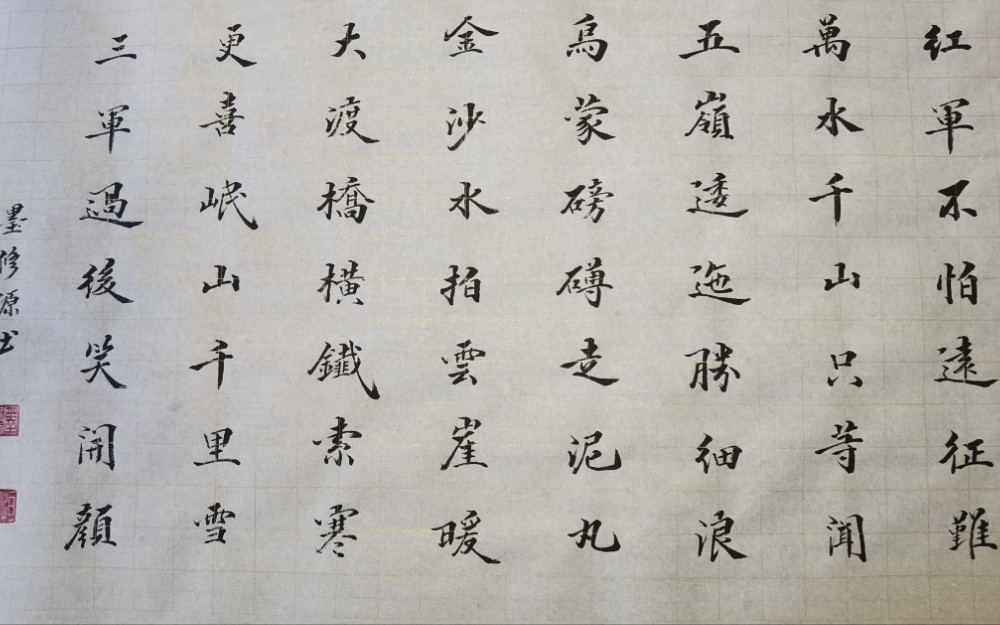 紅軍不怕遠征難
萬水千山只等閒
五嶺逶迤勝細浪
烏蒙磅礴走泥丸
金沙水拍雲崖暖
大渡橋橫鐵索寒
更喜岷山千里雪
三軍過後笑開顏
墨修源书